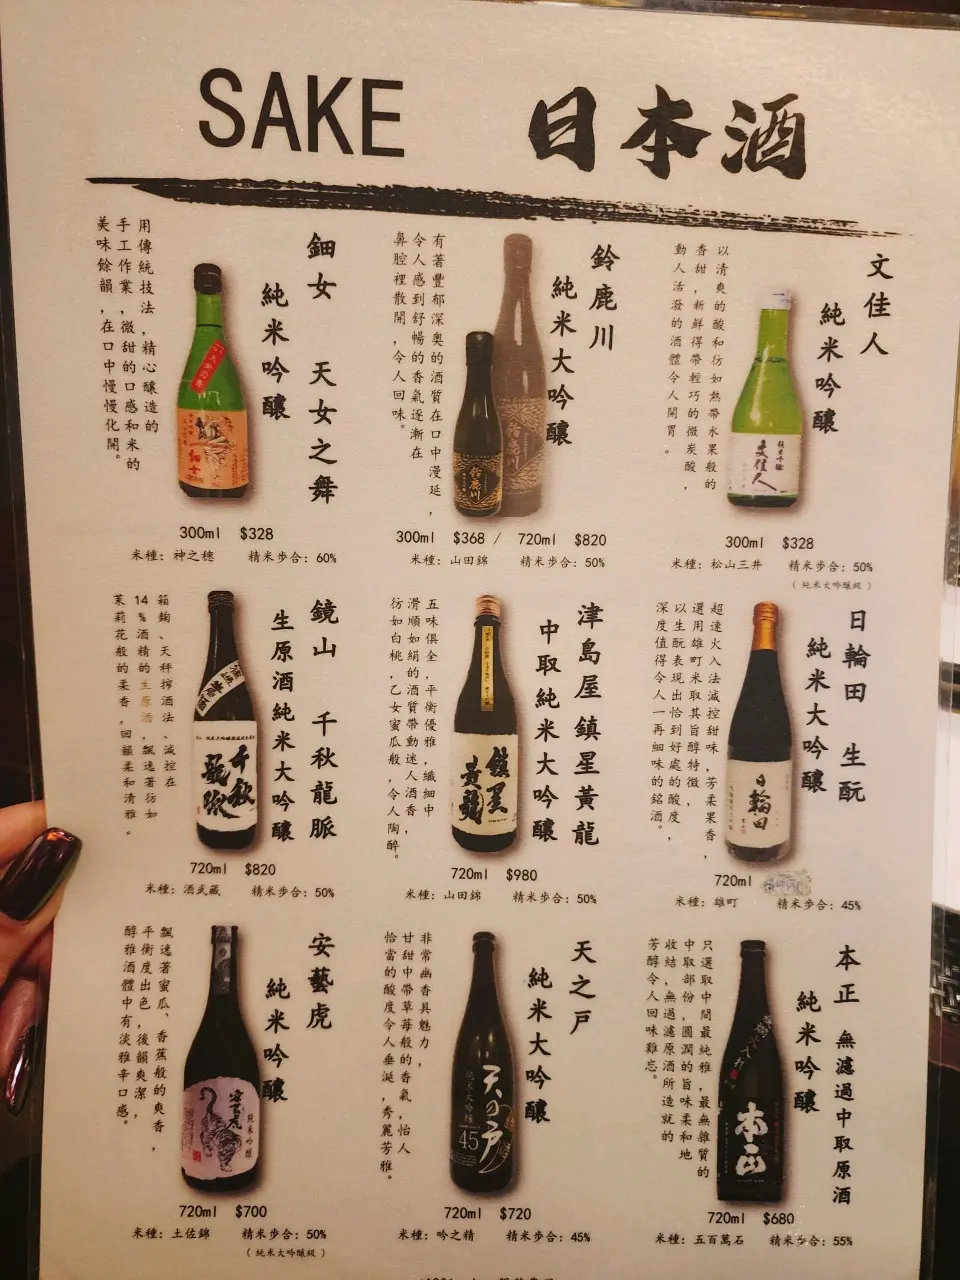 SAKE 日本酒
鈿女 天女之舞
純米吟釀
用傳統技法,精心釀造的
手工作業,微甜的口感和米的
美味餘韻,在口中慢慢化開。
300ml $328
米種: 神之穗 精米步合: 60%
鈴鹿川
純米大吟釀
有著豐郁深奧的酒質在口中漫延,
令人感到舒暢的香氣逐漸在
鼻腔裡散開,令人回味。
鈴鹿川
鈴鹿川
300ml $368 / 720ml $820
米種: 山田錦 精米步合: 50%
文佳人
純米吟釀
以清爽的酸和彷如熱帶水果般的
香甜,新鮮得帶輕巧的微炭酸,
動人活潑的酒體令人開胃。
純米吟釀
文佳人
300ml $328
米種: 松山三井 精米步合: 50%
(純米大吟釀級)
鏡山 千秋龍脈
生原酒純米大吟釀
箱麴、天秤搾酒法、減控在
14%酒精的生原酒,飄逸著彷如
茉莉花般的柔香,回韻柔和清雅。
千秋
龍脈
720ml $820
米種: 酒武藏 精米步合: 50%
津島屋 鎮星黃龍
中取純米大吟釀
五味俱全,平衡優雅,纖細中
滑順如絹的酒質帶動迷人酒香,
彷如白桃,乙女蜜瓜般,令人陶醉。
鎮星
黃龍
720ml $980
米種: 山田錦 精米步合: 50%
日輪田 生酛
純米大吟釀
超速火入法減控甜味,芳柔果香,
選用雄町米取其旨醇特徵,
以生酛表現出恰到好處的酸度,
深度值得令人一再細味的銘酒。
日輪田
720ml
米種: 雄町 精米步合: 45%
安藝虎
純米吟釀
飄逸著蜜瓜、香蕉般的爽香,
平衡度出色,後韻爽潔,
醇雅酒體中有,淡雅辛口感。
安芸虎
純米吟釀
720ml $700
米種: 土佐錦 精米步合: 50%
(純米大吟釀級)
天之戶
純米大吟釀
非常幽香具魅力,
甘甜中帶草莓般的香氣,怡人
恰當的酸度令人垂涎,秀麗芳雅。
天の戸
純米大吟醸
45
720ml $720
米種: 吟之精 精米步合: 45%
本正 無濾過中取原酒
純米吟釀
只選取中間最純雅,最無雜質的
中取部份,圓潤的旨味柔和地
收結,無過濾原酒所造就的
芳醇令人回味難忘。
本正
720ml $680
米種: 五百萬石 精米步合: 55%